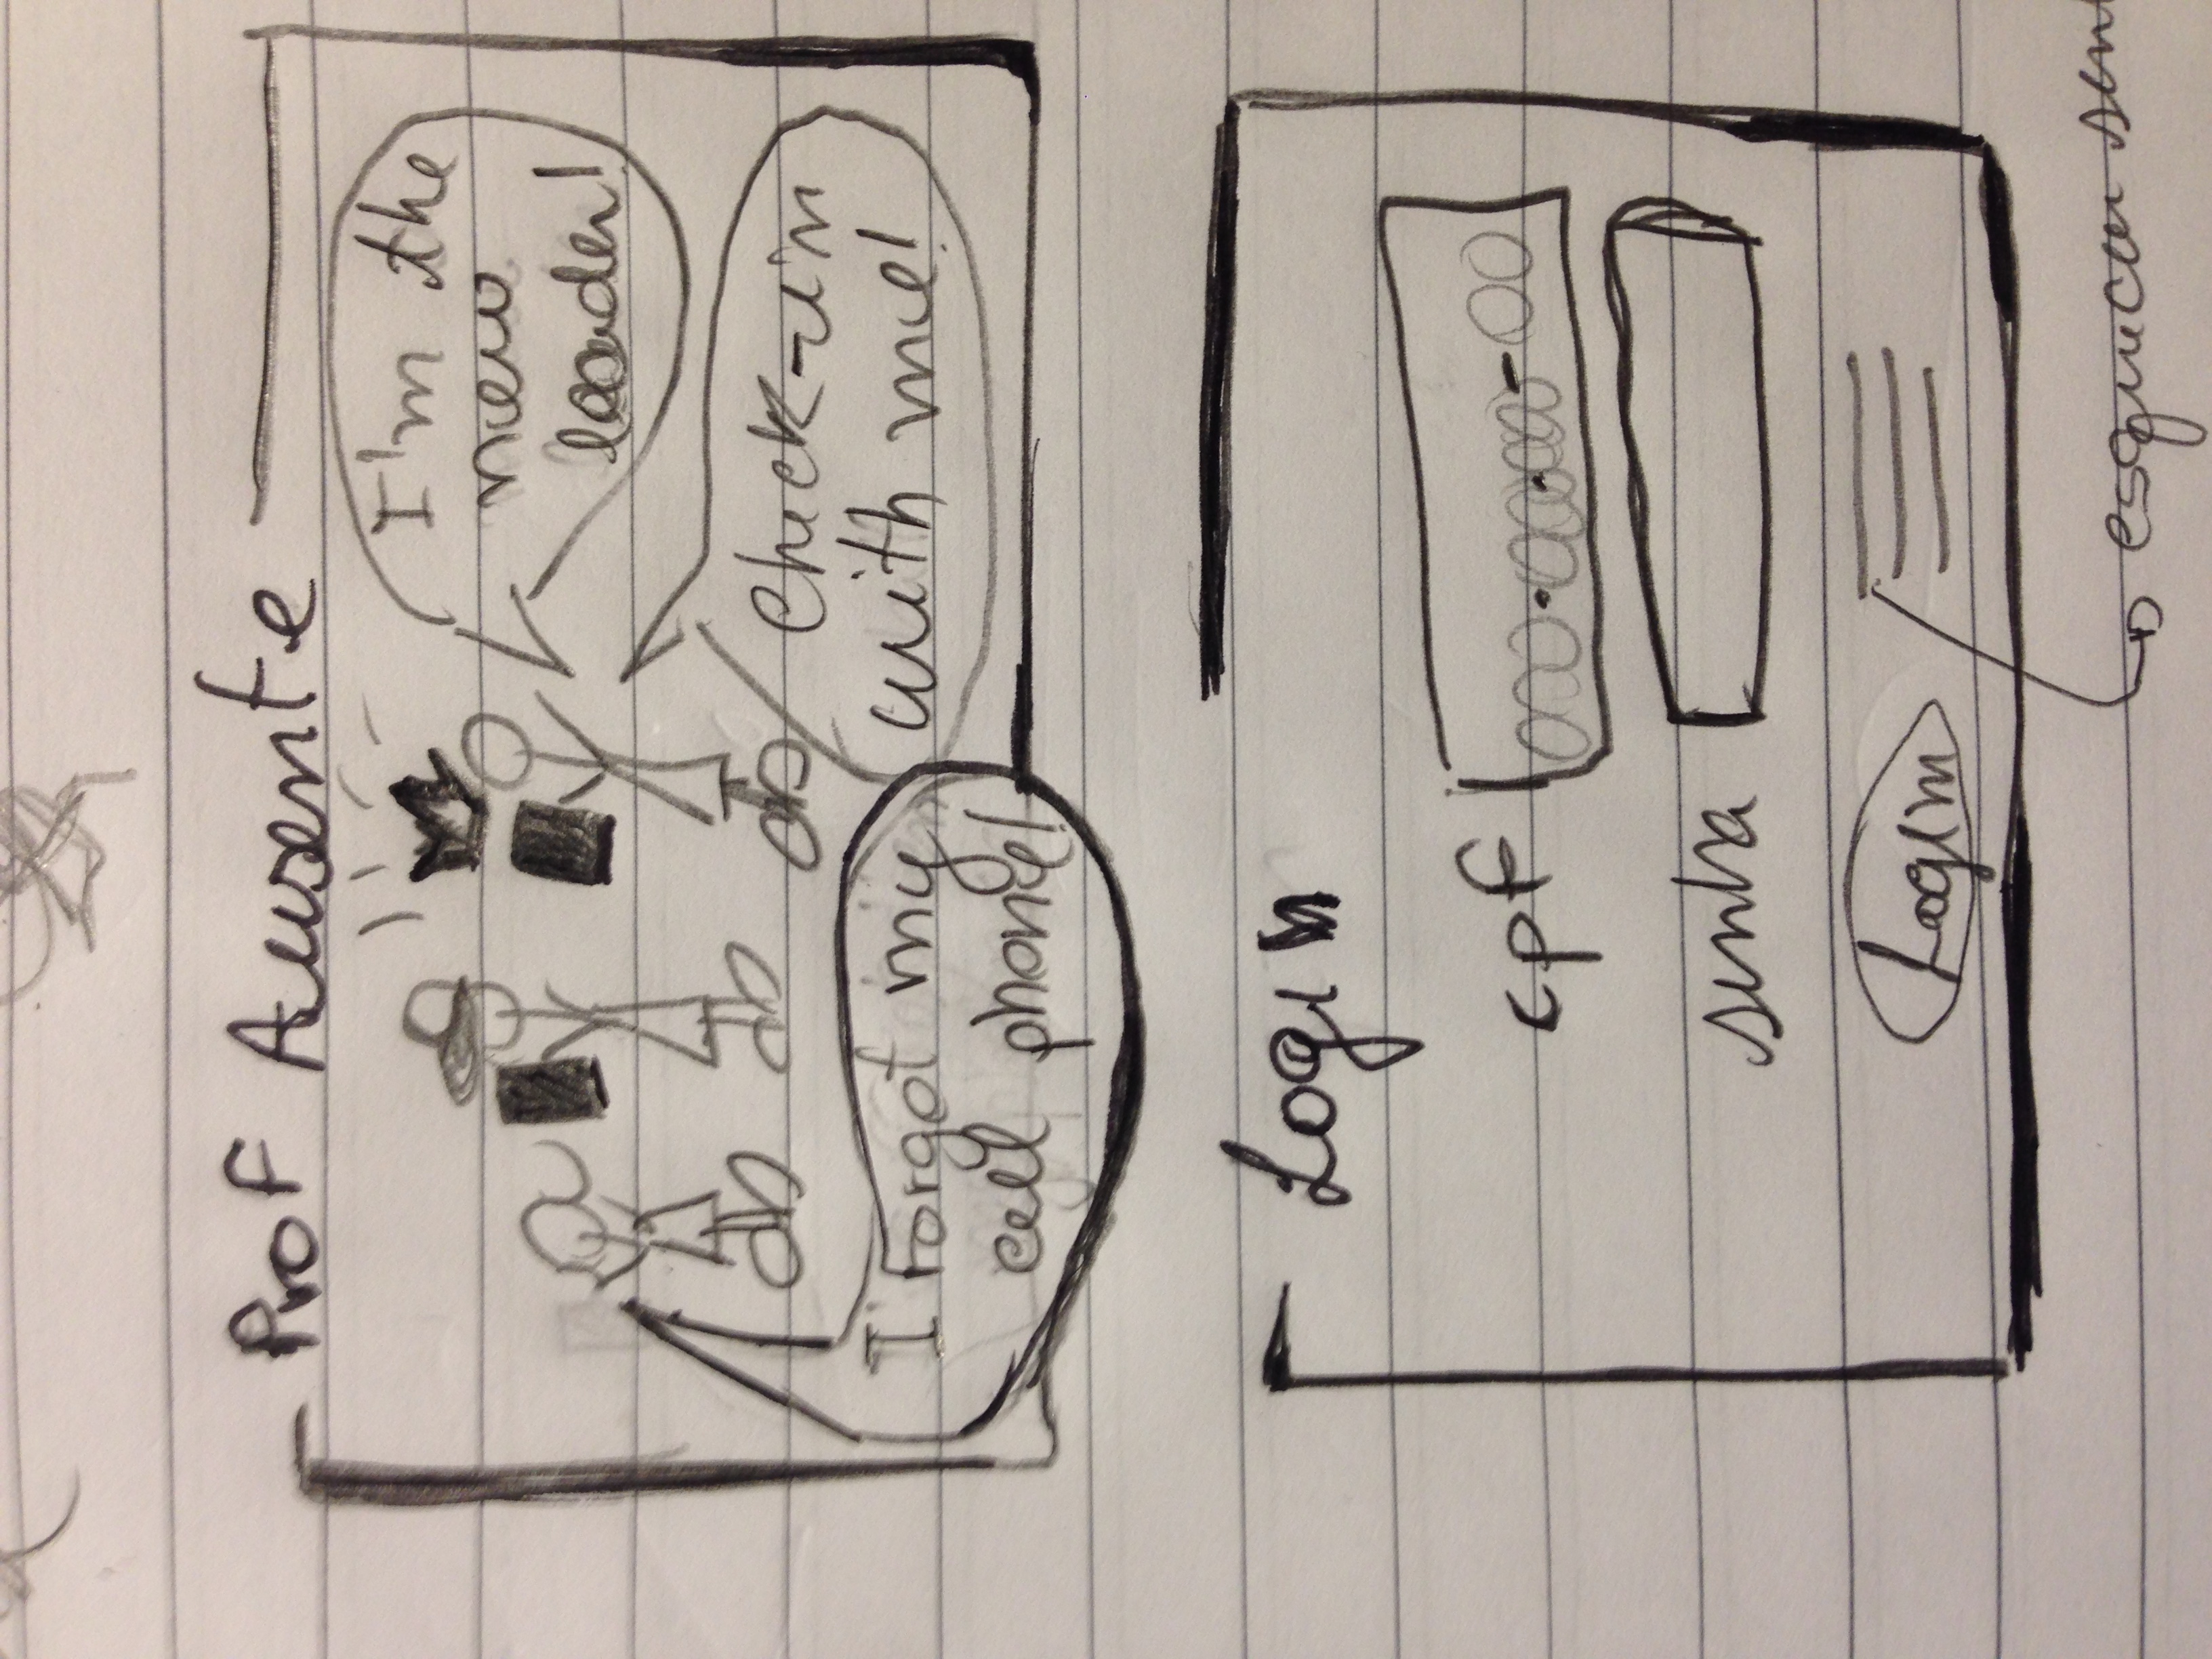 Prof Ausente
I'm the
new
leader!
Check-in
with me!
I forgot my
cell phone!
Login
cpf 000.000.000-00
senha
Login
esquecer